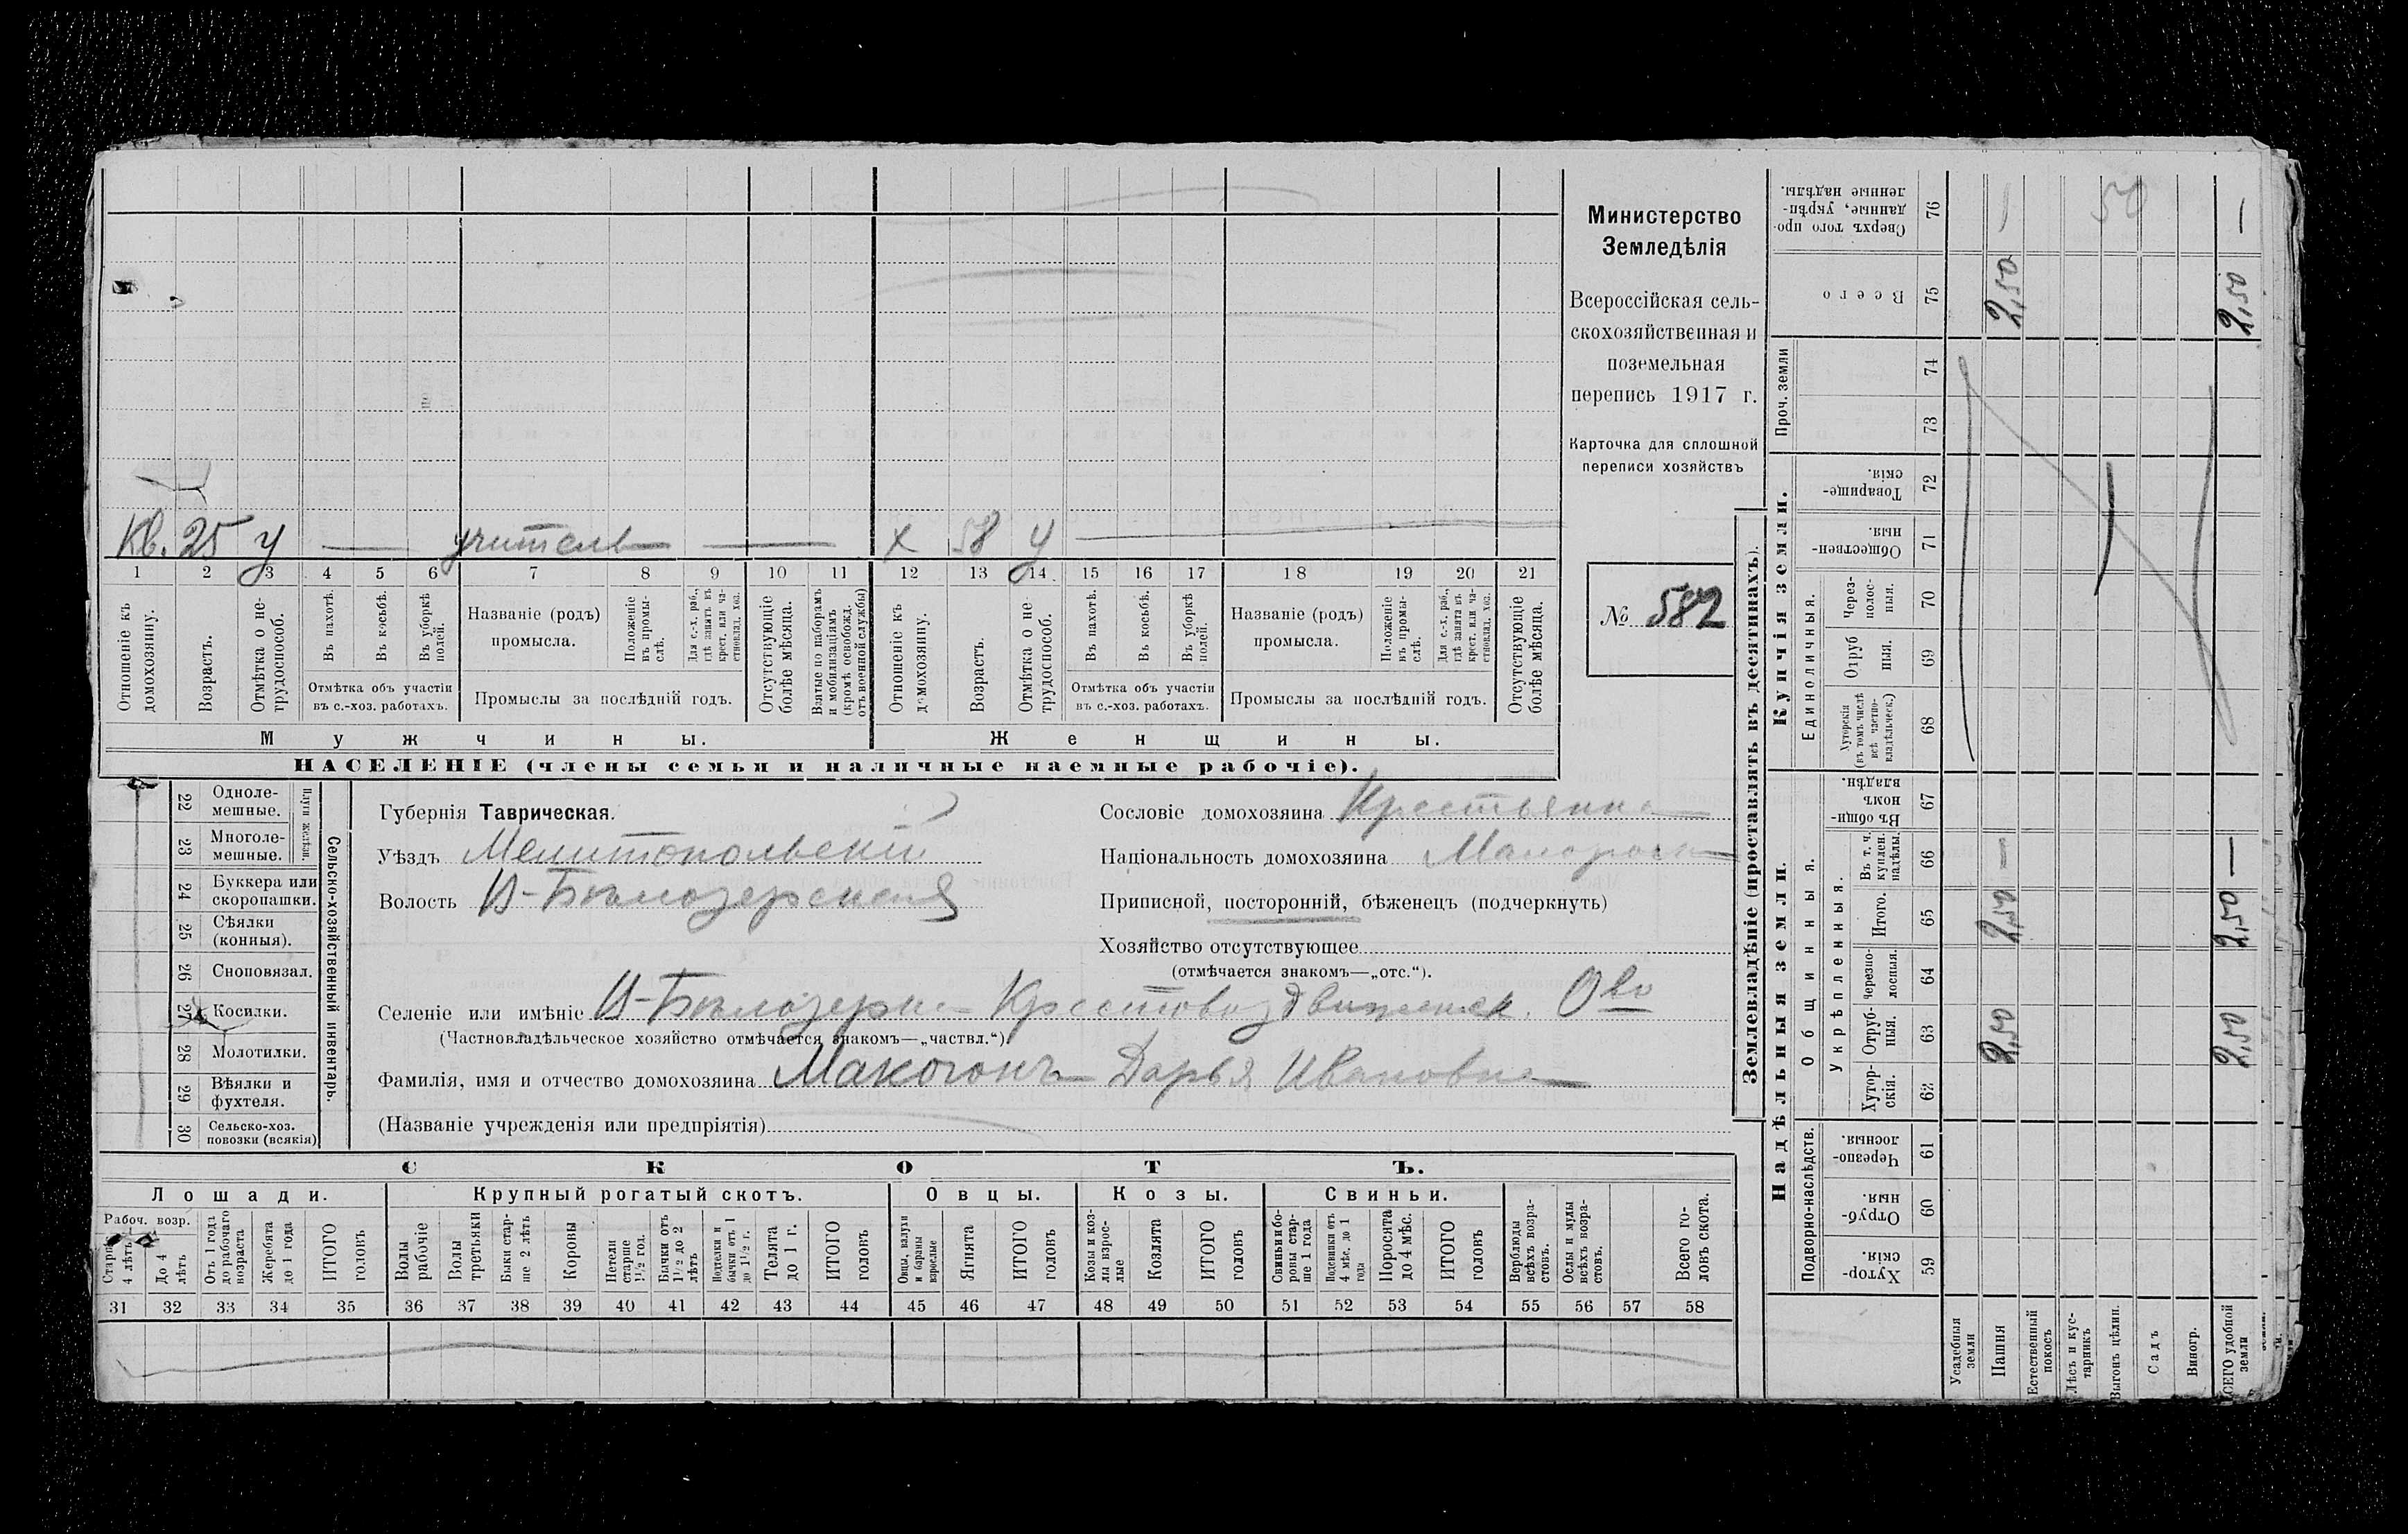 Министерство
Земледѣлія
Всероссійская сель-
скохозяйственная и
поземельная
перепись 1917 г.
Карточка для сплошной
переписи хозяйствъ
№ 582
Кв. 25 у — учитель — х 58 у —
1 2 3 4 5 6 7 8 9 10 11 12 13 14 15 16 17 18 19 20 21
Отношеніе къ домохозяину.
Возрастъ.
Отмѣтка о не-трудоспособ.
Въ пахотѣ.
Въ косьбѣ.
Въ уборкѣ полей.
Отмѣтка объ участіи
въ с.-хоз. работахъ.
Названіе (родъ)
промысла.
Положеніе въ промы-слѣ.
Для с.-х. раб., гдѣ занятъ въ крест. или ча-стновлад. хоз.
Промыслы за послѣдній годъ.
Отсутствующіе болѣе мѣсяца.
Взятые по наборамъ и мобилизаціямъ (кромѣ освобожд. отъ военной службы)
Отношеніе къ домохозяину.
Возрастъ.
Отмѣтка о не-трудоспособ.
Въ пахотѣ.
Въ косьбѣ.
Въ уборкѣ полей.
Отмѣтка объ участіи
въ с.-хоз. работахъ.
Названіе (родъ)
промысла.
Положеніе въ промы-слѣ.
Для с.-х. раб., гдѣ занята въ крест. или ча-стновлад. хоз.
Промыслы за послѣдній годъ.
Отсутствующіе болѣе мѣсяца.
Мужчины.
Женщины.
НАСЕЛЕНІЕ (члены семьи и наличные наемные рабочіе).
Сельско-хозяйственный инвентарь.
Плуги желѣзн.
22 Одноле-мешные.
23 Многоле-мешные.
24 Буккера или скоропашки.
25 Сѣялки (конныя).
26 Сноповязал.
27 Косилки.
28 Молотилки.
29 Вѣялки и фухтеля.
30 Сельско-хоз. повозки (всякія)
Губернія Таврическая.
Уѣздъ Мелитопольскій
Волость В-Бѣлозерская
Сословіе домохозяина Крестьянка
Національность домохозяина Малоросс
Приписной, посторонній, бѣженецъ (подчеркнуть)
Хозяйство отсутствующее
(отмѣчается знакомъ—„отс.“).
Селеніе или имѣніе В-Бѣлозерка Крестовоздвиженск. О-во
(Частновладѣльческое хозяйство отмѣчается знакомъ—„частвл.“).
Фамилія, имя и отчество домохозяина Макогонъ Дарья Ивановна
(Названіе учрежденія или предпріятія)
СКОТЪ.
Лошади. Крупный рогатый скотъ. Овцы. Козы. Свиньи.
Рабоч. возр.
Старше 4 лѣтъ
До 4 лѣтъ
Отъ 1 года до рабочаго возраста
Жеребята до 1 года
ИТОГО головъ
Волы рабочіе
Волы третьяки
Быки стар-ше 2 лѣтъ
Коровы
Нетели старше 1½ год.
Бычки отъ 1½ до 2 лѣтъ
Подтелки и бычки отъ 1 до 1½ г.
Телята до 1 г.
ИТОГО головъ
Овцы, валухи и бараны взрослые
Ягнята
ИТОГО головъ
Козы и коз-лы взрос-лые
Козлята
ИТОГО головъ
Свиньи и бо-ровы стар-ше 1 года
Подсвинки отъ 4 мѣс. до 1 года
Поросята до 4 мѣс.
ИТОГО головъ
Верблюды всѣхъ возра-стовъ.
Ослы и мулы всѣхъ возра-стовъ.
Всего го-ловъ скота.
31 32 33 34 35 36 37 38 39 40 41 42 43 44 45 46 47 48 49 50 51 52 53 54 55 56 57 58
Землевладѣніе (проставлять въ десятинахъ).
Надѣльныя земли.
Купчія земли.
Проч. земли
Подворно-наслѣдств.
Общинныя.
Укрѣпленныя.
Единоличныя.
Хутор-скія. 59
Отруб-ныя. 60
Черезпо-лосныя. 61
Хутор-скія. 62
Отруб-ныя. 63
Черезпо-лосныя. 64
Итого. 65
Въ т. ч. куплен. надѣлы. 66
Въ общи-номъ владѣн. 67
Хуторскія (въ томъ числѣ всѣ частно-владѣльческ.) 68
Отруб ныя. 69
Через-полос-ныя. 70
Обществен-ныя. 71
Товарище-скія. 72
73
74
Всего 75
Сверхъ того про-данные, укрѣп-ленные надѣлы. 76
Усадебныя земли
Пашня 2,50 2,50 — 2,50 —
Естественный покосъ
Лѣсъ и кус-тарникъ
Выгонъ цѣлин. 50
Садъ
Виногр.
ВСЕГО удобной земли 2,50 2,50 — 2,50 —